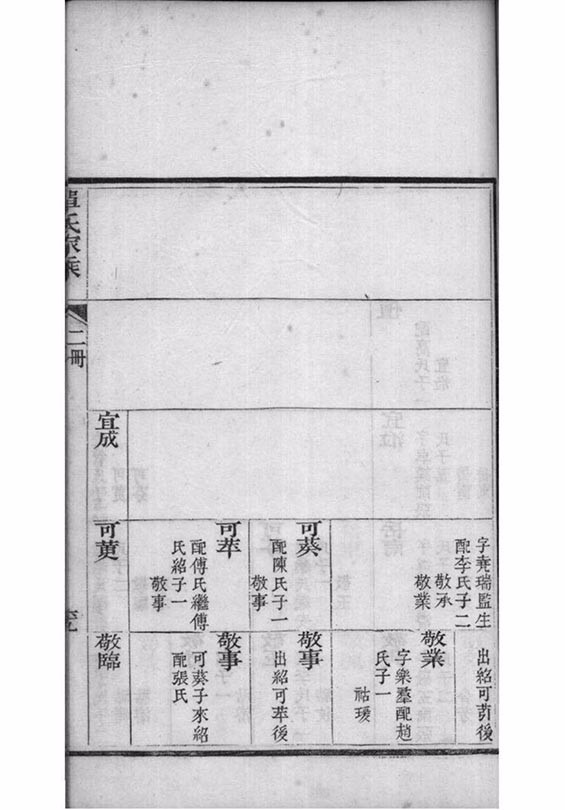 字堯瑞監生
配李氏子二
敬承
敬業
可葵
配陳氏子一
敬事
可萃
配傅氏繼傅
氏紹子一
敬事
宜成
可
出紹可
後
敬業
字樂羣配趙
氏子一
祜瑗
敬事
出紹可萃後
敬事
可葵子來紹
配張氏
敬臨
氏家乘
二冊